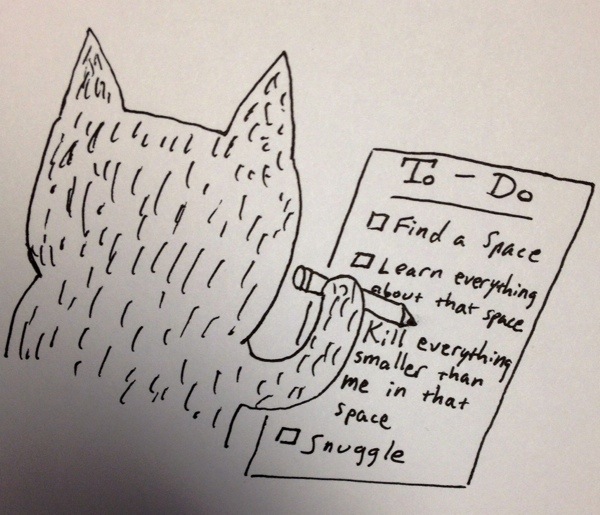 To - Do
Find a Space
Learn everything
about that space
Kill everything
smaller than
me in that
space
Snuggle